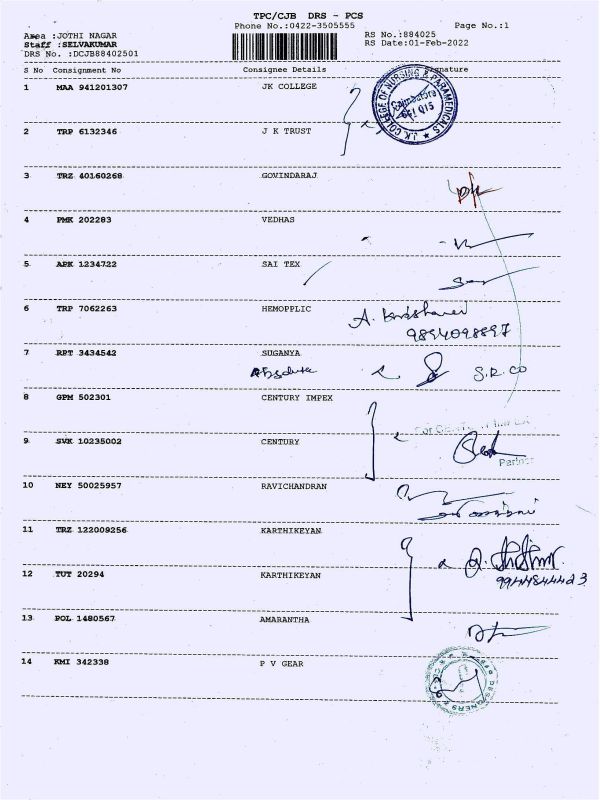 TPC/CJB DRS - PCS
Phone No.:0422-3505555 Page No.:1
Area :JOTHI NAGAR RS No.:884025
Staff :SELVAKUMAR RS Date:01-Feb-2022
DRS No. :DCJB88402501
S No Consignment No Consignee Details Signature
1 MAA 941201307 JK COLLEGE
J.K. COLLEGE OF NURSING & PARAMEDICALS
Coimbatore
641 015
2 TRP 6132346 J K TRUST
3 TRZ 40160268 GOVINDARAJ
4 PMK 202283 VEDHAS
5 APK 1234722 SAI TEX
6 TRP 7062263 HEMOPPLIC
9894098897
7 RPT 3434542 SUGANYA
S.R.CO
8 GPM 502301 CENTURY IMPEX
9 SVK 10235002 CENTURY
Partner
10 NEY 50025957 RAVICHANDRAN
11 TRZ 122009256 KARTHIKEYAN
12 TUT 20294 KARTHIKEYAN
9944844423
13 POL 1480567 AMARANTHA
14 KMI 342338 P V GEAR